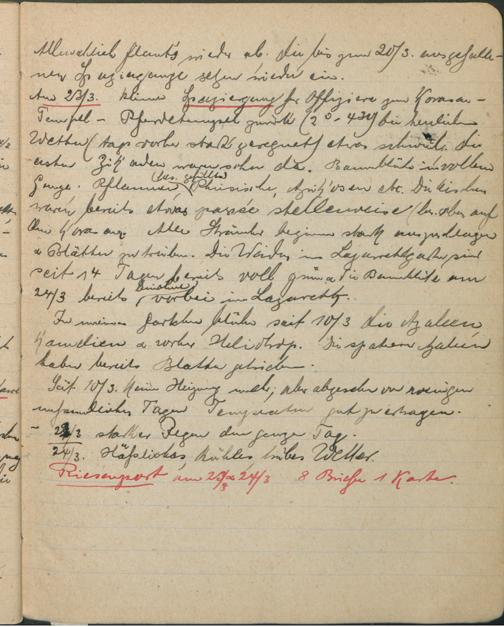 Allmählich flaut's wieder ab. Die bis zum 20/3. ausgefalle-
nen Spaziergänge setzen wieder ein.
Am 23/3. kleiner Spaziergang für Offiziere zum Korasan-
Tempel - zurück (2° - 430) bei herrlichem
Wetter (tags vorher stark geregnet) etwas schwül. Die
ersten Zikaden waren schon da. Baumblüte in vollem
Gange. Pflaumen (bes. gefüllte) Pfirsiche, Aprikosen etc. Die Kirschen
waren bereits etwas passée stellenweise bes. oben auf
dem Korasan. Alle Sträucher beginnen stark auszuschlagen
u Blätter zu treiben. Die Weiden im Lazarettgarten sind
seit 14 Tagen bereits voll grün u die Baumblüte am
24/3 bereits vorbei im Lazarett.
In meinem Garten blühen seit 10/3 die Azaleen,
Kamelien u vorher Heliotrop. Die späteren Azaleen
haben bereits Blätter getrieben.
Seit 10/3. keine Heizung mehr, aber abgesehen von wenigen
unfreundlichen Tagen Temperatur gut zu ertragen.
- 23/3 starker Regen den ganzen Tag.
24/3. Hässliches, kühles trübes Wetter.
Riesenpost am 23/3 u 24/3 8 Briefe 1 Karte.